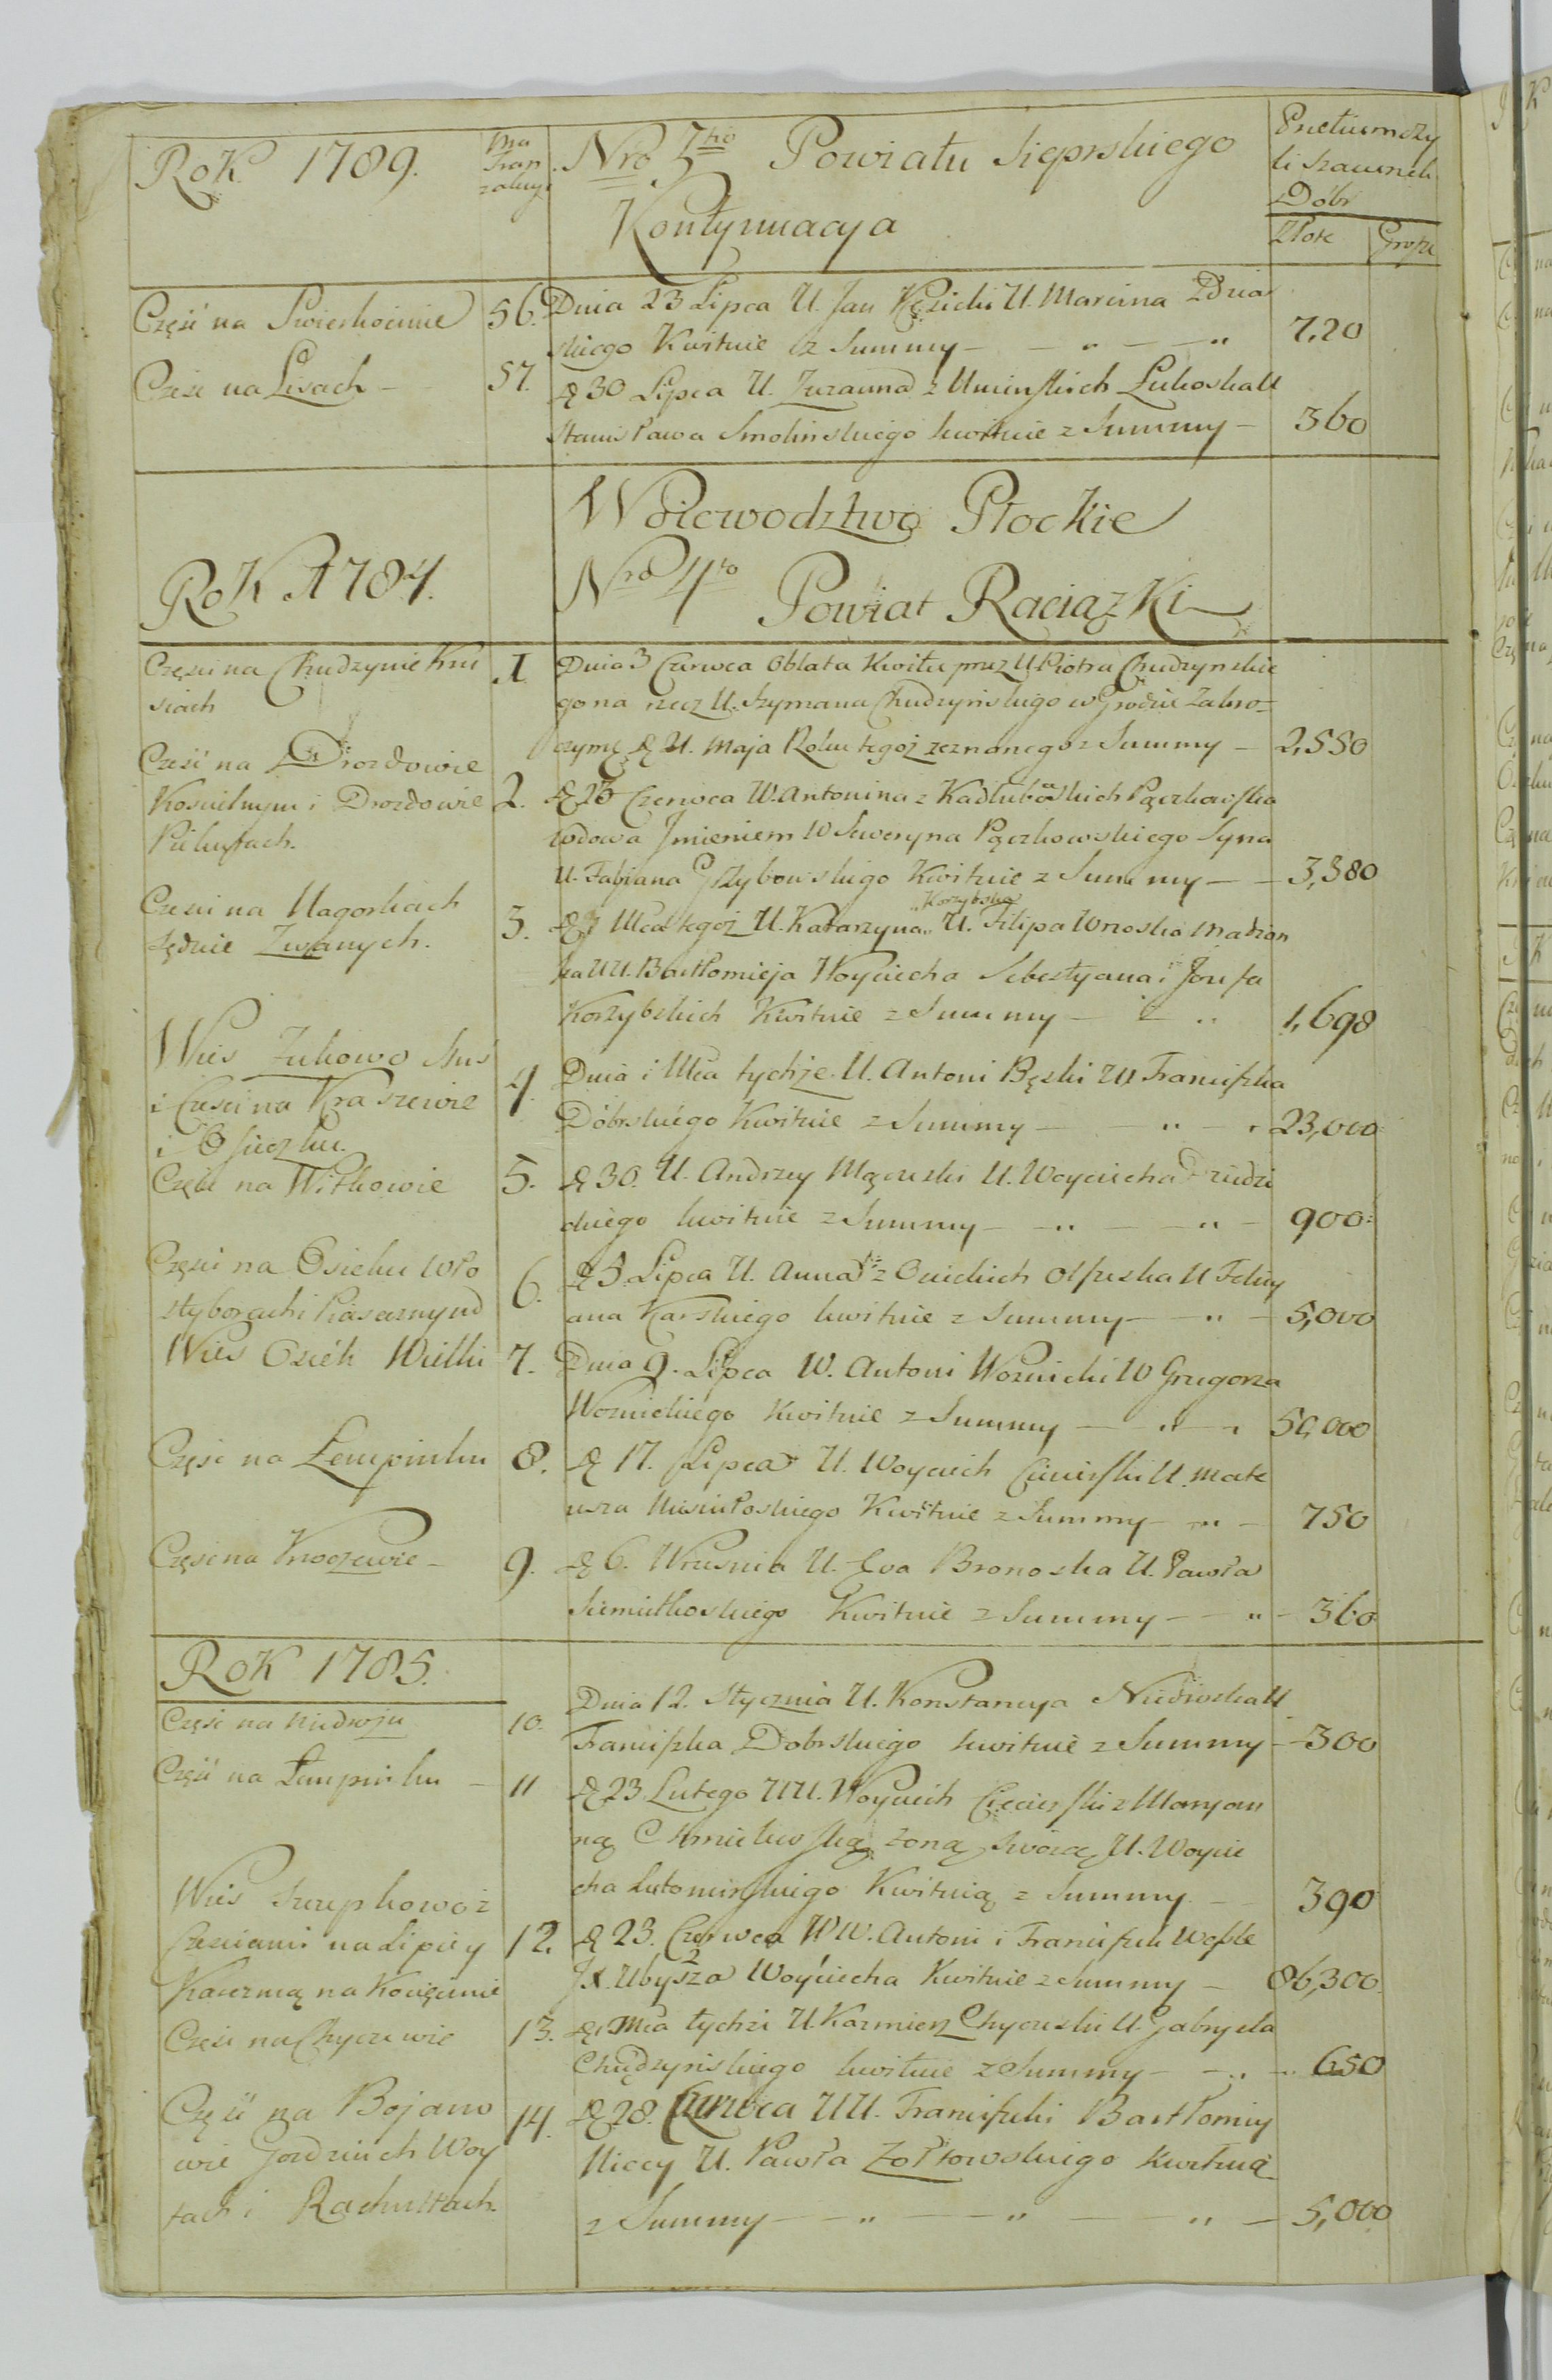 Rok 1789.
Nro 3tio Powiatu Sieprskiego
Kontynuacya
Pretium czy
li szacunek
Dóbr
Złote Grosze
Część na Swierkocinie 56. Dnia 23 Lipca U. Jan Kęsicki U. Marcina Zdziar
skiego Kwituie z Summy 720
Część na Lisach 57. D 30 Lipca U. Zuzanna z Uminskich Lukoska U
Stanisława Smolinskiego kwituie z Summy 360
Woiewodztwo Płockie
Rok 1784. Nro 4to Powiat Raciązki
Części na Chudzynie Kru
siach
1. Dnia 3 Czerwca Oblata Kwitu przez U. Piotra Chudzynskie
go na rzecz U. Szymana Chudzyńskiego w Grodzie Zakro-
czyms. D U. Maja Roku tegoż zeznanego z Summy 2,550
Część na Drozdowie
Kościelnym i Drozdowie
2. D 26 Czerwca W. Antonina z Kadłubowskich Pączkowska
wdowa Imieniem W Seweryna Pączkowskiego Syna
U. Fabiana Grzybowskiego Kwituie z Summy 3,380
Części na Nagorkach
Zwanych.
3. D Mca tegoż U. Katarzyna Korzybska U. Filipa Wroska Małżon
ka UU. Bartłomieja Woyciecha Sebestyana i Jozefa
Korzybskich Kwituie z Summy 1,698
Wies Zukowo
i Części na Kraszewie
i
4. Dnia i Mca tychże U. Antoni Bęski W Franciszka
Dobrskiego Kwituie z Summy 23,000
Część na Witkowie 5. D 30. U. Andrzey Mączeski U. Woyciecha Drudzi
ckiego kwituie z Summy 900
Części na Osieku Wło
styborach i Piasecznym
6. D 5 Lipca U. Anna z Olszeska U Felicy
ana Karskiego kwituie z Summy 5,000
Wies Osiek Wielki 7. Dnia 9. Lipca W. Antoni Woznicki W Grzegorza
Woznickiego Kwituie z Summy 50,000
Część na Łempinku 8. D 17. Lipca U. Woyciech Ciecierski U. Mate
usza Misiułoskiego Kwituie z Summy 750
Część na Kroczewie 9. D 6. Wrzesnia U. Ewa Bronoska U. Pawła
Siemiątkoskiego Kwituie z Summy 360
Rok 1785.
Część na Niedroju 10. Dnia 12. Stycznia U. Konstancya Niedroska U
Franciszka Dobrskiego kwituie z Summy 300
Część na Łempinku 11 D 23 Lutego UU. Woyciech Ciecierski z Maryan
ną Chmielewską żoną swoią U. Woycie
cha Lutomirskiego Kwituią z Summy 390
Wies Szczepkowo z
Częściami na Lipiey
Karczmą na Kocięcinie
12. D 23. Czerwca WW. Antoni i Franciszek Wessle
J.X. Ubysza Woyciecha Kwituie z Summy 86,300
Część na Chyczewie 13. D i Mca tychże U. Kazmierz Chyczeski U. Gabryela
Chudzyńskiego kwituie z Summy 650
Część na Bojano
wie Gozdziach Woy
tach i Rachułtach
14. D 28. Czerwca UU. Franciszek i Bartłomiey
Niccy U. Pawła Zołtowskiego kwituią
z Summy 5,000